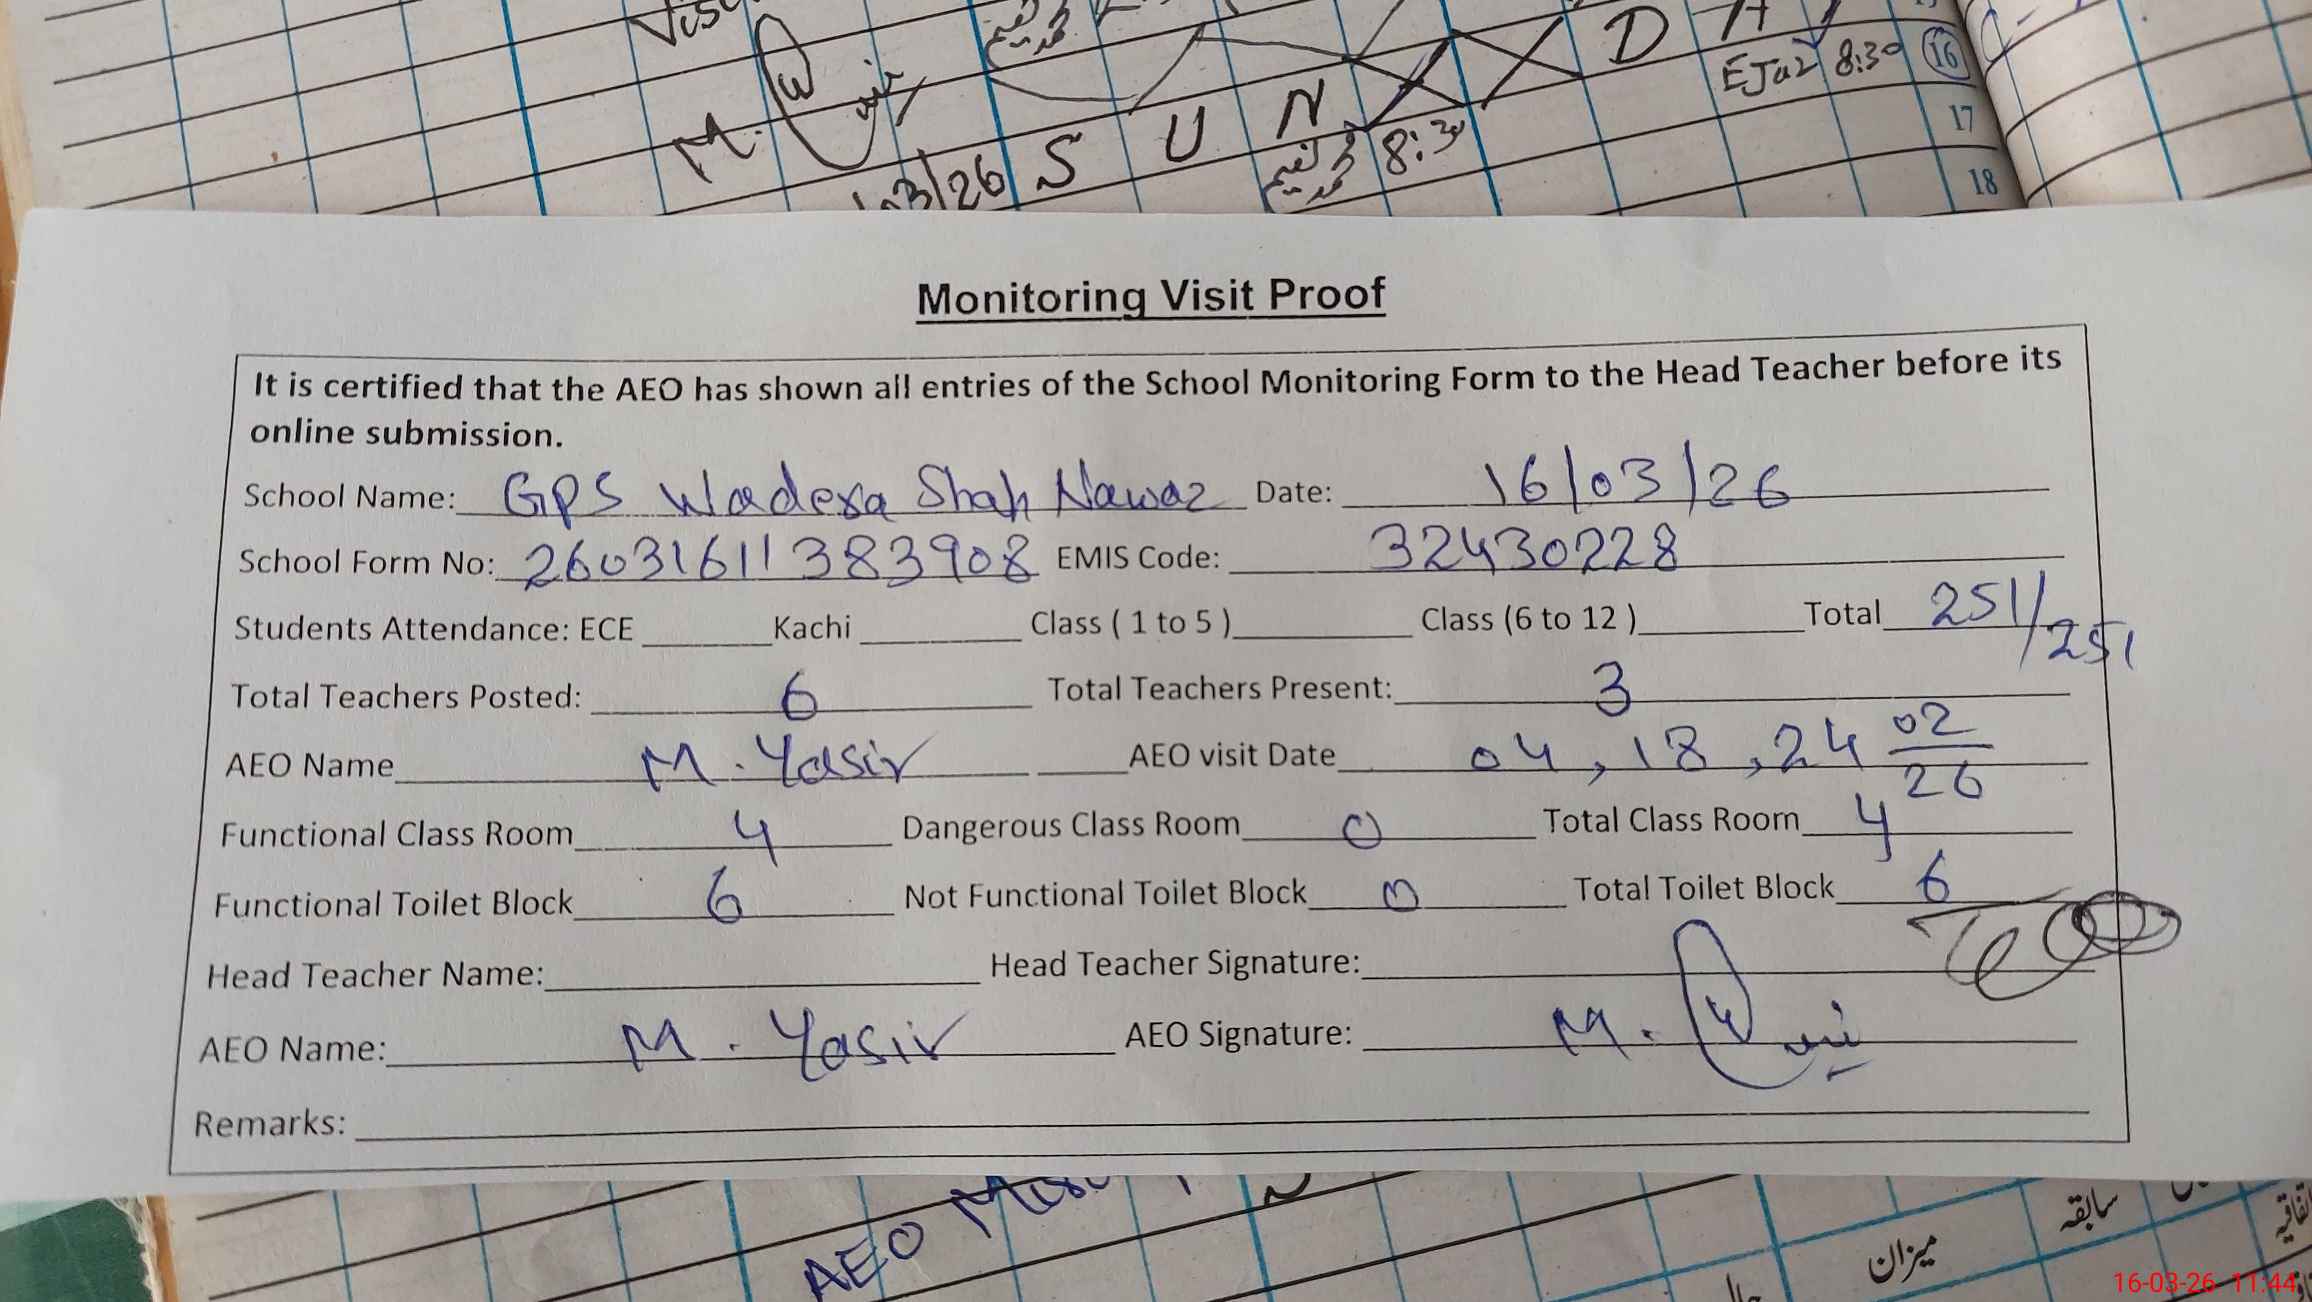 M.
3/26 S U N D A
محمد نعیم 8:30
EJaz 8:30 16
17
18
Monitoring Visit Proof
It is certified that the AEO has shown all entries of the School Monitoring Form to the Head Teacher before its
online submission.
School Name: GPS Wadera Shah Nawaz Date: 16/03/26
School Form No: 260316111383908 EMIS Code: 32430228
Students Attendance: ECE Kachi Class ( 1 to 5 ) Class (6 to 12 ) Total 251/251
Total Teachers Posted: 6 Total Teachers Present: 3
AEO Name M. Yasir AEO visit Date 04, 18, 24 02/26
Functional Class Room 4 Dangerous Class Room 0 Total Class Room 4
Functional Toilet Block 6 Not Functional Toilet Block 0 Total Toilet Block 6
Head Teacher Name: Head Teacher Signature:
AEO Name: M. Yasir AEO Signature: M.
Remarks:
AEO
میزان سابقہ
16-03-26 11:44